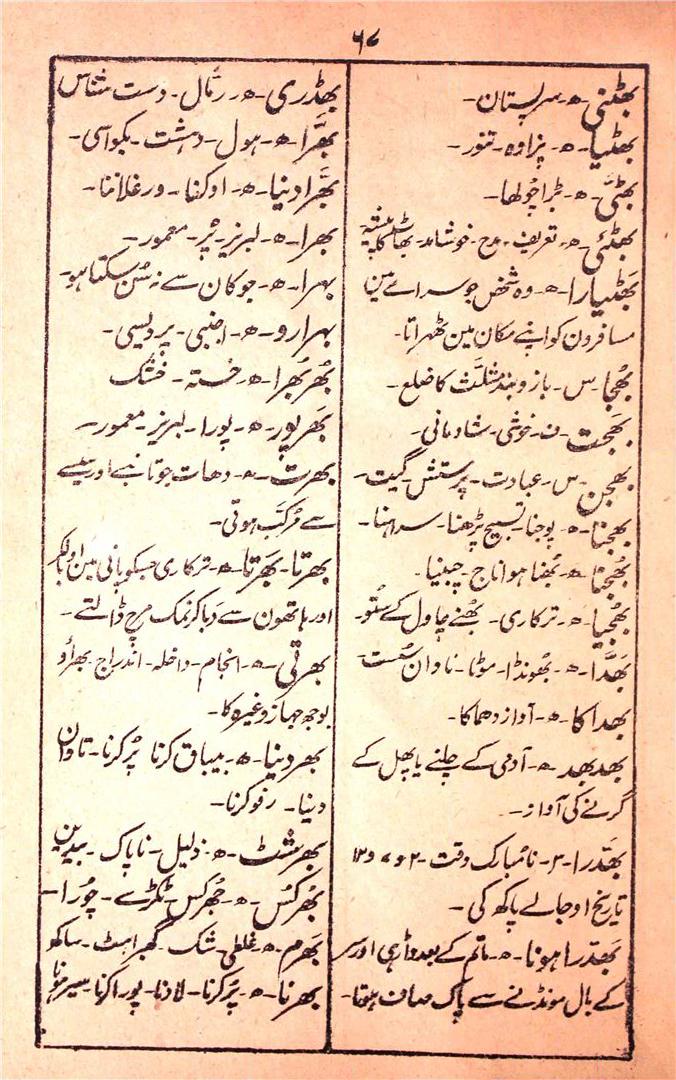 ۶۸
بھٹنی - ھ - سرپستان -
بھٹیا - ھ - پزاوہ - تنور -
بھٹّی - ھ - بڑا چُولھا -
بھٹئی - ھ - تعریف - مدح - خوشامد - بھاٹ کا پیشہ
بَھٹیارا - ھ - وہ شخص جو سراے مین
مسافرون کو اپنے مکان مین ٹھہراتا -
بُھجا - س - بازوبند مثلّث کا ضلع -
بَھجت - ف - خوشی - شادمانی -
بھجن - س - عبادت - پرستش - گیت -
بھجنا - ھ - پوجنا تسبیح پڑھنا - سراہنا -
بُھجنا - ھ - بُھنا ہوا ناج - چبنیا -
بُھجیا - ھ - ترکاری - بُھنے چاول کے ستُو -
بَھدّا - ھ - بُھونڈا - موٹا - ناوان سُست -
بھداکا - ھ - آواز دھماکا -
بھد بھد - ھ - آدمی کے چلنے یا پھل کے
گرنے کی آواز -
بھَدرا - ۳ - نامُبارک وقت - ۲ و ۷ و ۱۲
تاریخ اوجالے پاکھ کی -
بھَدرا ہونا - ھ - ماتم کے بعد ڈاڑہی اور سر
کے بال مونڈنے سے پاک صاف ہونا -
بھڈری - ھ - رمّال - دست شناس
بَھرّا - ھ - ہول - دہشت - بکواسی -
بَھرّا دینا - ھ - اوکنا - ورغلاننا -
بھرا - ھ - لبریز - پُر - معمور -
بہرا - ھ - جو کان سے نہ سُن سکتا ہو -
بہارو - ھ - اجنبی - پردیسی -
بُھربُھرا - ھ - خستہ - خُشک
بَھرپور - ھ - پورا - لبریز - معمور -
بھرت - ھ - دھات جو تانبے اور سیسے
سے مُرکّب ہوتی -
بھرتا - بَھرتا - ھ - ترکاری جسکو پانی مین اوبالکر
اور ہاتھون سے دَبا کر نمک مرچ ڈالتے -
بھرتی - ھ - انجام - داخلہ - اندراج - بھراؤ
بوجھ جہاز وغیرہ کا -
بھر دینا - ھ - بیباق کرنا پُر کرنا - تاوان
دینا - رفو کرنا -
بھرشٹ - ھ - ذلیل - ناپاک - بیدین
بُھرکُس - ھ - بُھرکس ٹکڑے - چُورا -
بَھرم - ھ - غلطی - شک - گھبراہٹ - ساکھ
بھرنا - ھ - پُر کرنا - لادنا - پورا کرنا - سیر ہونا